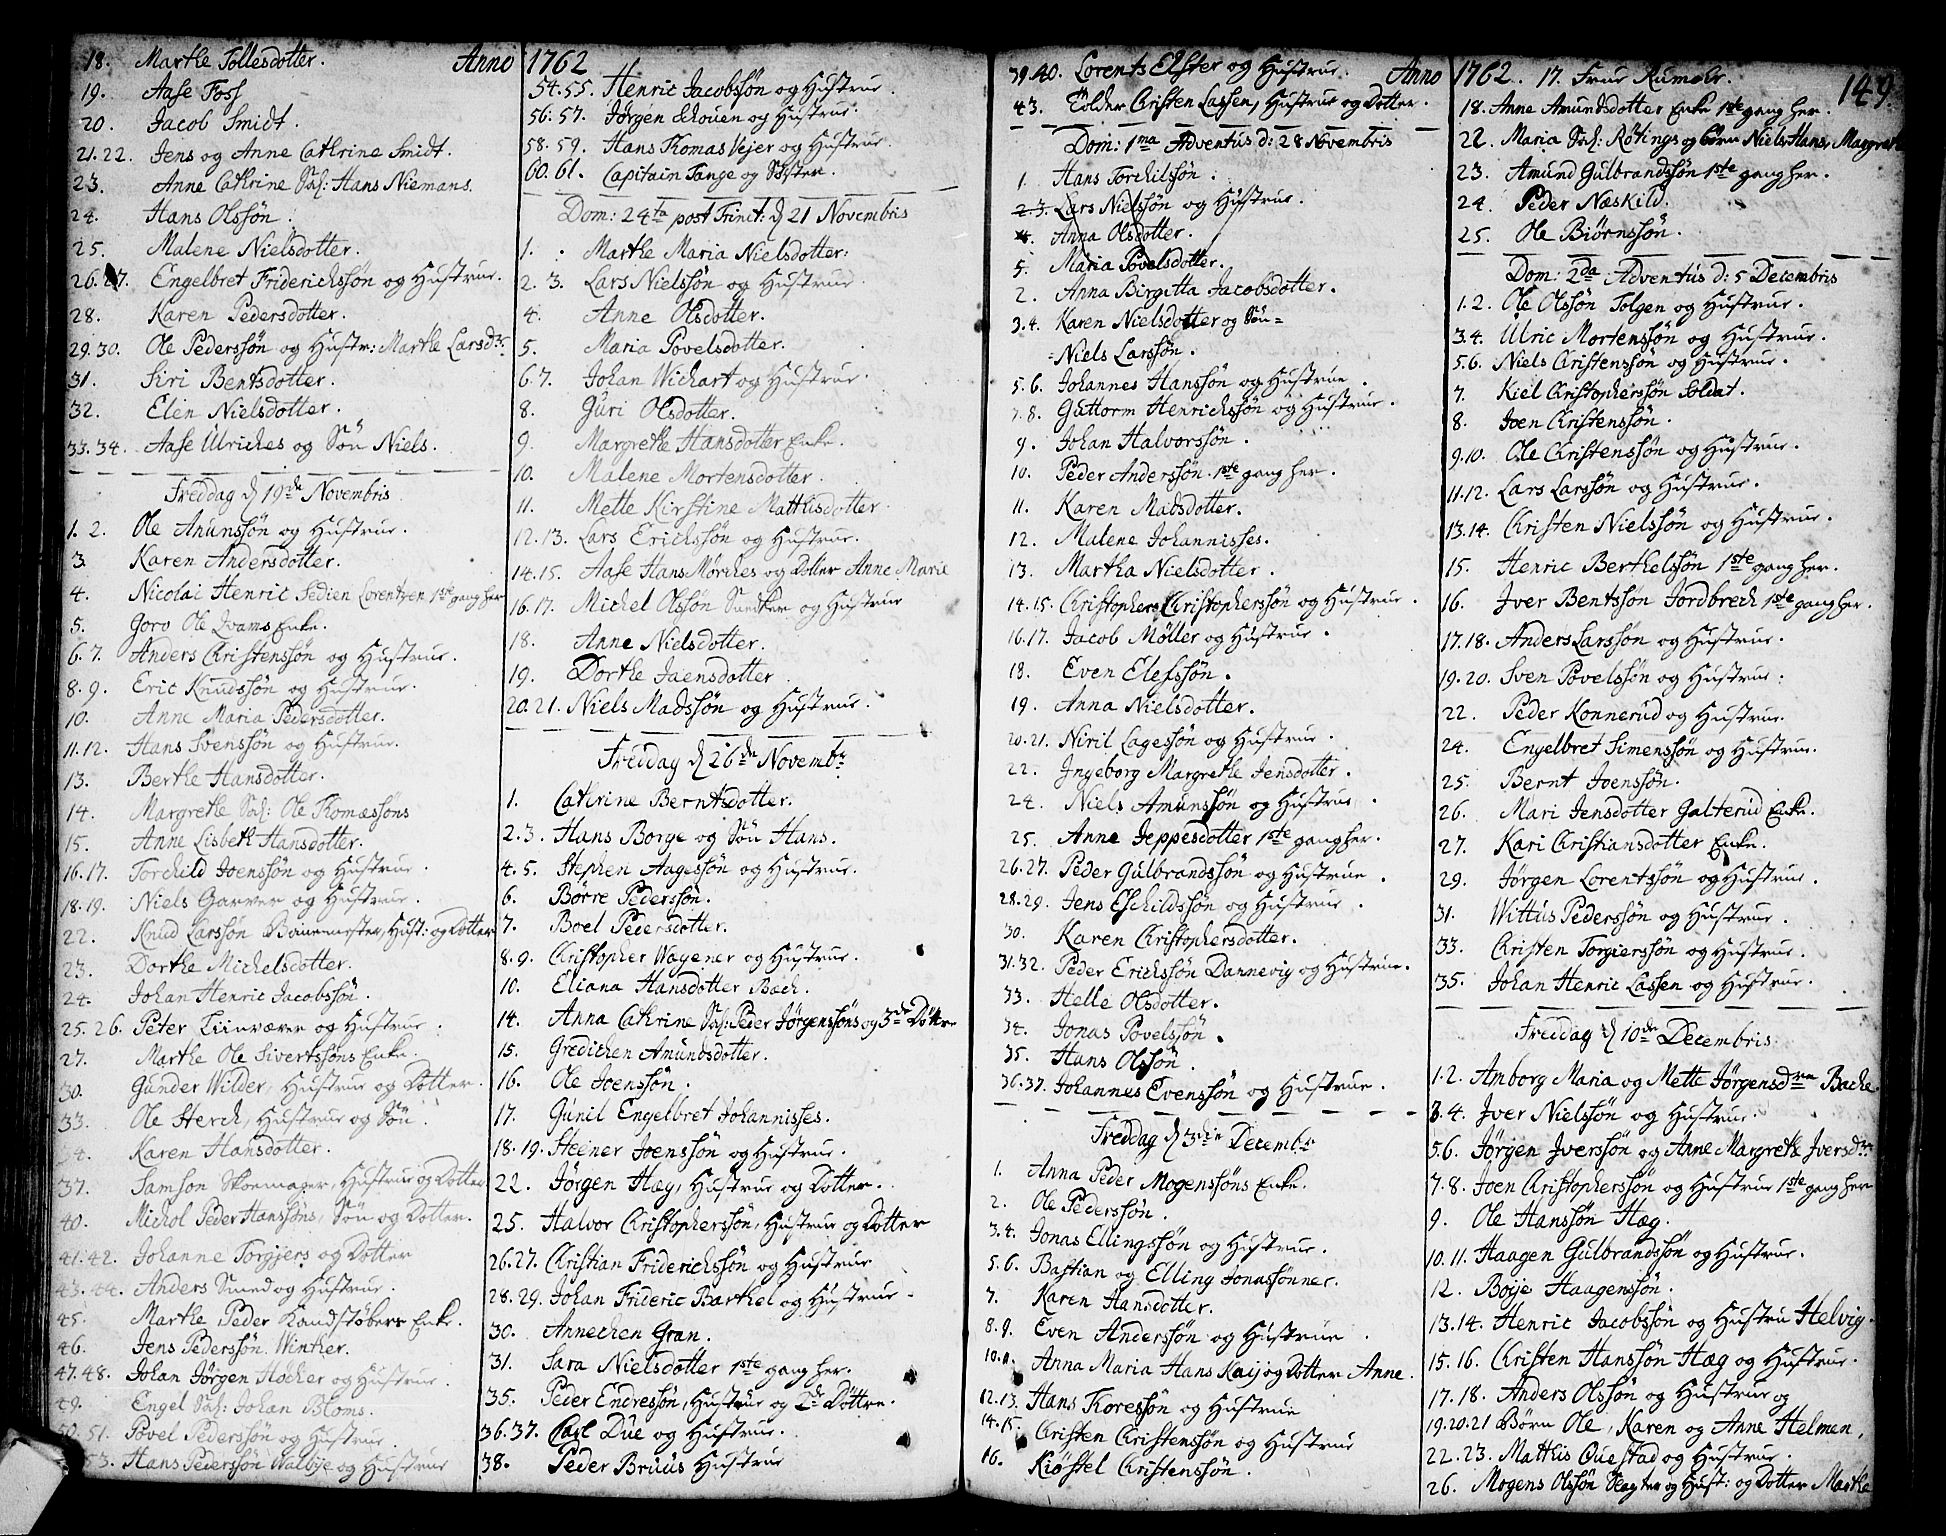 Anno 1762
18. Marthe Tollesdotter.
19. Aase Foss
20. Jacob Smidt.
21. 22. Jens og Anne Cathrine Smidt.
23. Anne Cathrine Sal: Hans Niemans.
24. Hans Olssøn.
25. Malene Nielsdotter.
26. 27. Engelbret Friderichssøn og Hustrue.
28. Karen Pedersdotter.
29. 30. Ole Pederssøn og Hustr: Marthe Larsdr.
31. Siri Bentsdotter.
32. Elen Nielsdotter.
33. 34. Aase Ulriches og Søn Niels.
Freddag d 19de Novembris
1. 2. Ole Anunssøn og Hustrue.
3. Karen Andersdotter.
4. Nicolai Henric Sedien Lorentzen 1ste gang her
5. Goro Ole Qvams Enke.
6. 7. Anders Christenssøn og Hustrue.
8. 9. Eric Knudssøn og Hustrue.
10. Anne Maria Pedersdotter.
11. 12. Hans Svenssøn og Hustrue.
13. Berthe Hansdotter.
14. Margrethe Sal: Ole Thomæssøns
15. Anne Lisbeth Hansdotter.
16. 17. Torchild Joenssøn og Hustrue.
18. 19. Niels Garver og Hustrue.
22. Knud Larssøn Banemester, Hust: og Dotter
23. Dorthe Michelsdotter.
24. Johan Henric Jacobssøn.
25. 26. Peter Liinværer og Hustrue.
27. Marthe Ole Sivertssøns Enke.
30. Gunder Wilder, Hustrue og Dotter.
33. Ole Sterch, Hustrue og Søn.
34. Karen Hansdotter.
37. Samson Skoemager, Hustrue og Dotter
40. Michol Peder Hanssøns, Søn og Dotter.
41. 42. Johanne Torgjers og Dotter
43. 44. Anders Smed og Hustrue.
45. Marthe Peder Kandstøbers Enke.
46. Jens Pederssøn Winther.
47. 48. Johan Jørgen Høcker og Hustrue.
49. Engel Sal: Johan Bloms.
50. 51. Povel Pederssøn og Hustrue.
53. Hans Pederssøn Walbye og Hustrue
54. 55. Henric Jacobssøn og Hustrue.
56. 57. Jørgen Schouen og Hustrue
58. 59. Hans Thomas Vejer og Hustrue.
60. 61. Capitain Tange og Søster.
Dom: 24ta post Trinit: d 21 Novembris
1. Marthe Maria Nielsdotter.
2. 3. Lars Nielssøn og Hustrue.
4. Anne Olsdotter.
5. Maria Povelsdotter.
6. 7. Johan Wichart og Hustrue.
8. Guri Olsdotter.
9. Margrethe Hansdotter Enke.
10. Malene Mortensdotter.
11. Mette Kirstine Matthisdotter
12. 13. Lars Erichssøn og Hustrue.
14. 15. Aase Hans Mørches og Dotter Anne Marie
16. 17. Michel Olssøn Snedker og Hustrue
18. Anne Nielsdotter.
19. Dorthe Jaensdotter
20. 21. Niels Madssøn og Hustrue.
Freddag d 26de Novembr
1. Cathrine Berntsdotter.
2. 3. Hans Borge og Søn Hans.
4. 5. Stephen Aagessøn og Hustrue.
6. Børre Pederssøn.
7. Boel Pedersdotter.
8. 9. Christopher Wagener og Hustrue.
10. Eliana Hansdotter Bach.
14. Anna Cathrine Sal: Peder Jørgenssøns og 3de Døttre
15. Gredichen Amundsdotter.
16. Ole Joenssøn.
17. Gunil Engelbret Johannisses.
18. 19. Steener Joenssøn og Hustrue.
22. Jørgen Hæg, Hustrue og Dotter.
25. Halvor Christopherssøn, Hustrue og Dotter
26. 27. Christian Friderichssøn og Hustrue
28. 29. Johan Frideric Barthel og Hustrue.
30. Annechen Gran.
31. Sara Nielsdotter 1ste gang her.
35. Peder Endressøn, Hustrue og 2de Døttre.
36. 37. Carl Due og Hustrue.
38. Peder Bruus Hustrue
Anno 1762. 149.
39. 40. Lorents Elster og Hustrue.
43. Tolder Christen Lassen, Hustrue og Dotter.
Dom: 1ma Adventus d: 28 Novembris
1. Hans Torchilssøn.
2. 3. Lars Nielssøn og Hustrue.
4. Anna Olsdotter.
5. Maria Povelsdotter.
2. Anna Birgitta Jacobsdotter.
3. 4. Karen Nielsdotter og Søn=
=Niels Larssøn.
5. 6. Johannes Hanssøn og Hustrue.
7. 8. Guttorm Henrichssøn og Hustrue.
9. Johan Halvorssøn.
10. Peder Anderssøn 1ste gang her.
11. Karen Madsdotter.
12. Malene Johannisses.
13. Martha Nielsdotter.
14. 15. Christopher Christopherssøn og Hustrue.
16. 17. Jacob Møller og Hustrue.
18. Even Elefssøn.
19. Anna Nielsdotter.
20. 21. Niril Lagessøn og Hustrue.
22. Ingeborg Margrethe Jensdotter.
24. Niels Amunssøn og Hustrue.
25. Anne Jeppesdotter 1ste gang her.
26. 27. Peder Gulbrandssøn og Hustrue.
28. 29. Jens Eschildssøn og Hustrue.
30. Karen Christophersdotter.
31. 32. Peder Erichssøn Dannevig og Hustrue.
33. Helle Olsdotter.
34. Jonas Povelssøn.
35. Hans Olssøn.
36. 37. Johannes Evenssøn og Hustrue.
Freddag d 3die Decembr
1. Anna Peder Mogenssøns Enke.
2. Ole Pederssøn.
3. 4. Jonas Ellingssøn og Hustrue.
5. 6. Bastian og Elling Jonassønner.
7. Karen Hansdotter.
8. 9. Even Anderssøn og Hustrue.
10. 11. Anna Maria Hans Kaij og Dotter Anne.
12. 13. Hans Thoressøn og Hustrue
14. 15. Christen Christenssøn og Hustrue
16. Kiøstel Christenssøn.
17. Frue Rumohr.
18. Anne Amundsdotter Enke 1ste gang her.
22. Maria Sal: Røtings og Børn Niels, Hans, Margrethe
23. Amund Gulbrandssøn 1ste gang her.
24. Peder Næskild.
25. Ole Biørnssøn.
Dom: 2da Adventus d: 5 Decembris
1. 2. Ole Olssøn Tolgen og Hustrue.
3. 4. Ulric Mortenssøn og Hustrue.
5. 6. Niels Christenssøn og Hustrue.
7. Kiel Christopherssøn Soldat.
8. Joen Christenssøn.
9. 10. Ole Christenssøn og Hustrue.
11. 12. Lars Larssøn og Hustrue.
13. 14. Christen Nielssøn og Hustrue.
15. Henric Berthelssøn 1ste gang her.
16. Iver Bentssøn Jordbrech 1ste gang her.
17. 18. Anders Larssøn og Hustrue.
19. 20. Sven Povelssøn og Hustrue.
22. Peder Konnerud og Hustrue.
24. Engelbret Simenssøn og Hustrue.
25. Bernt Joenssøn.
26. Mari Jensdotter Galterud Enke.
27. Kari Christiansdotter Enke.
29. Jørgen Lorentssøn og Hustrue.
31. Wittus Pederssøn og Hustrue.
33. Christen Torgierssøn og Hustrue.
35. Johan Henric Lassen og Hustrue.
Freddag d 10de Decembris
1. 2. Amborg Maria og Mette Jørgensdrea Bache.
3. 4. Iver Nielssøn og Hustrue.
5. 6. Jørgen Iverssøn og Anne Margrethe Iversdr
7. 8. Joen Christopherssøn og Hustrue 1ste gang her
9. Ole Hanssøn Hæg.
10. 11. Haagen Gulbrandssøn og Hustrue.
12. Boije Haagenssøn.
13. 14. Henric Jacobssøn og Hustru Helvig.
15. 16. Christen Hanssøn Hæg og Hustrue.
17. 18. Anders Olssøn og Hustrue og
19. 20. 21 Børn Ole, Karen og Anne Helmen.
22. 23. Matthis Questad og Hustrue.
26. Mogens Olssøn Slagter og Hust: og Dotter Marthe